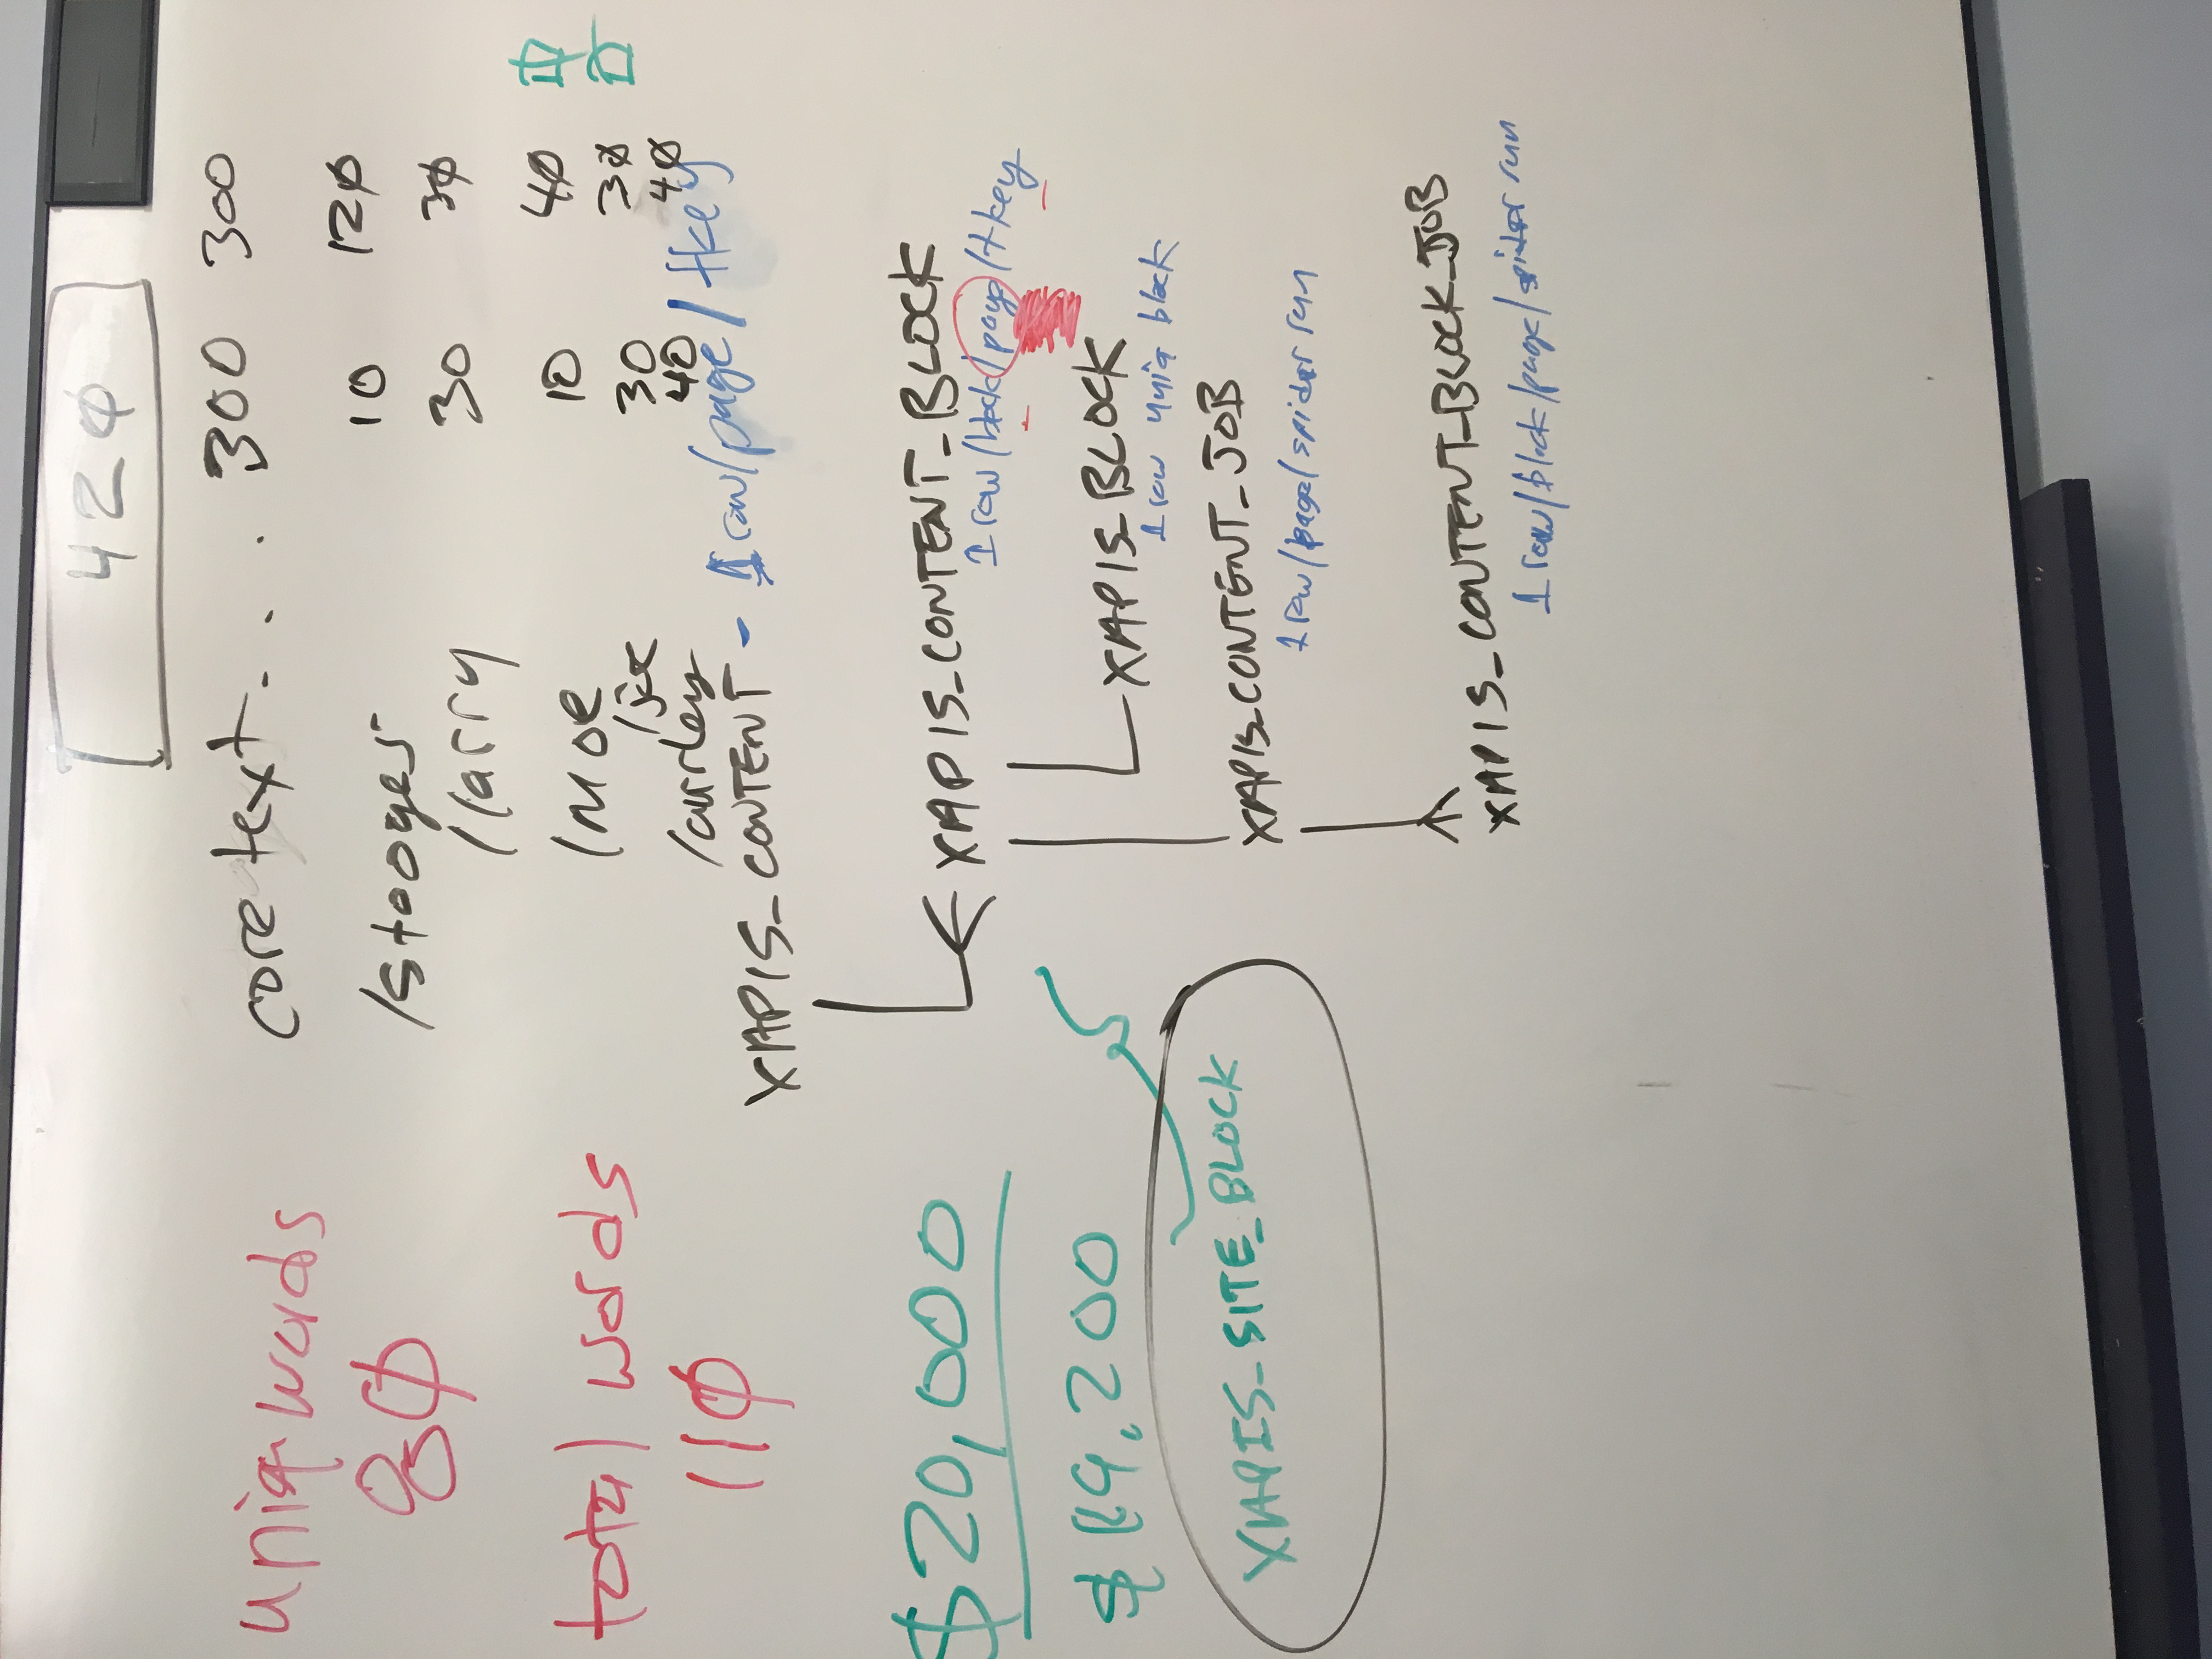 420
coretext . . . 300 300
/stooges 10 120
/larry 30 30
/moe 10 40
/joe 30 30
/curley 40 40
XAPIS_CONTENT - 1 row/page/tkey
XAPIS_CONTENT_BLOCK
1 row/block/page/tkey
XAPIS_BLOCK
1 row uniq block
XAPIS_CONTENT_JOB
1 row/page/spider run
XAPIS_CONTENT_BLOCK_JOB
1 row/block/page/spider run
uniq words
80
total words
110
$20,000
XAPIS_SITE_BLOCK